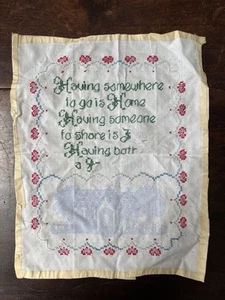 Having somewhere
to go is Home
Having someone
to share is
Having bot
a